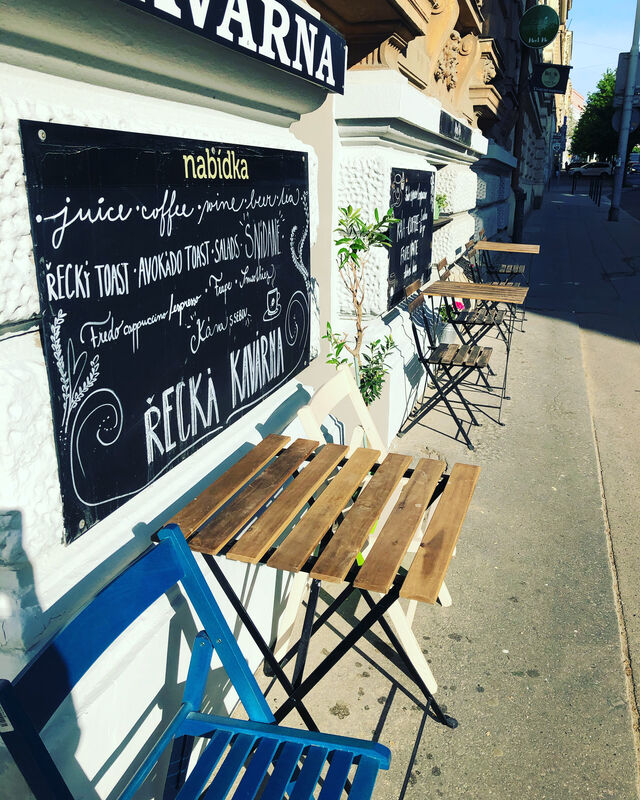 KAVÁRNA
nabídka
· juice · coffee · wine · beer · tea
ŘECKÝ TOAST · AVOKADO TOAST · SALADS · SNÍDANĚ
Fredo cappuccino/espresso · Frape · Smoothies
· Káva S SEBOU
ŘECKÁ KAVÁRNA
COFFEE